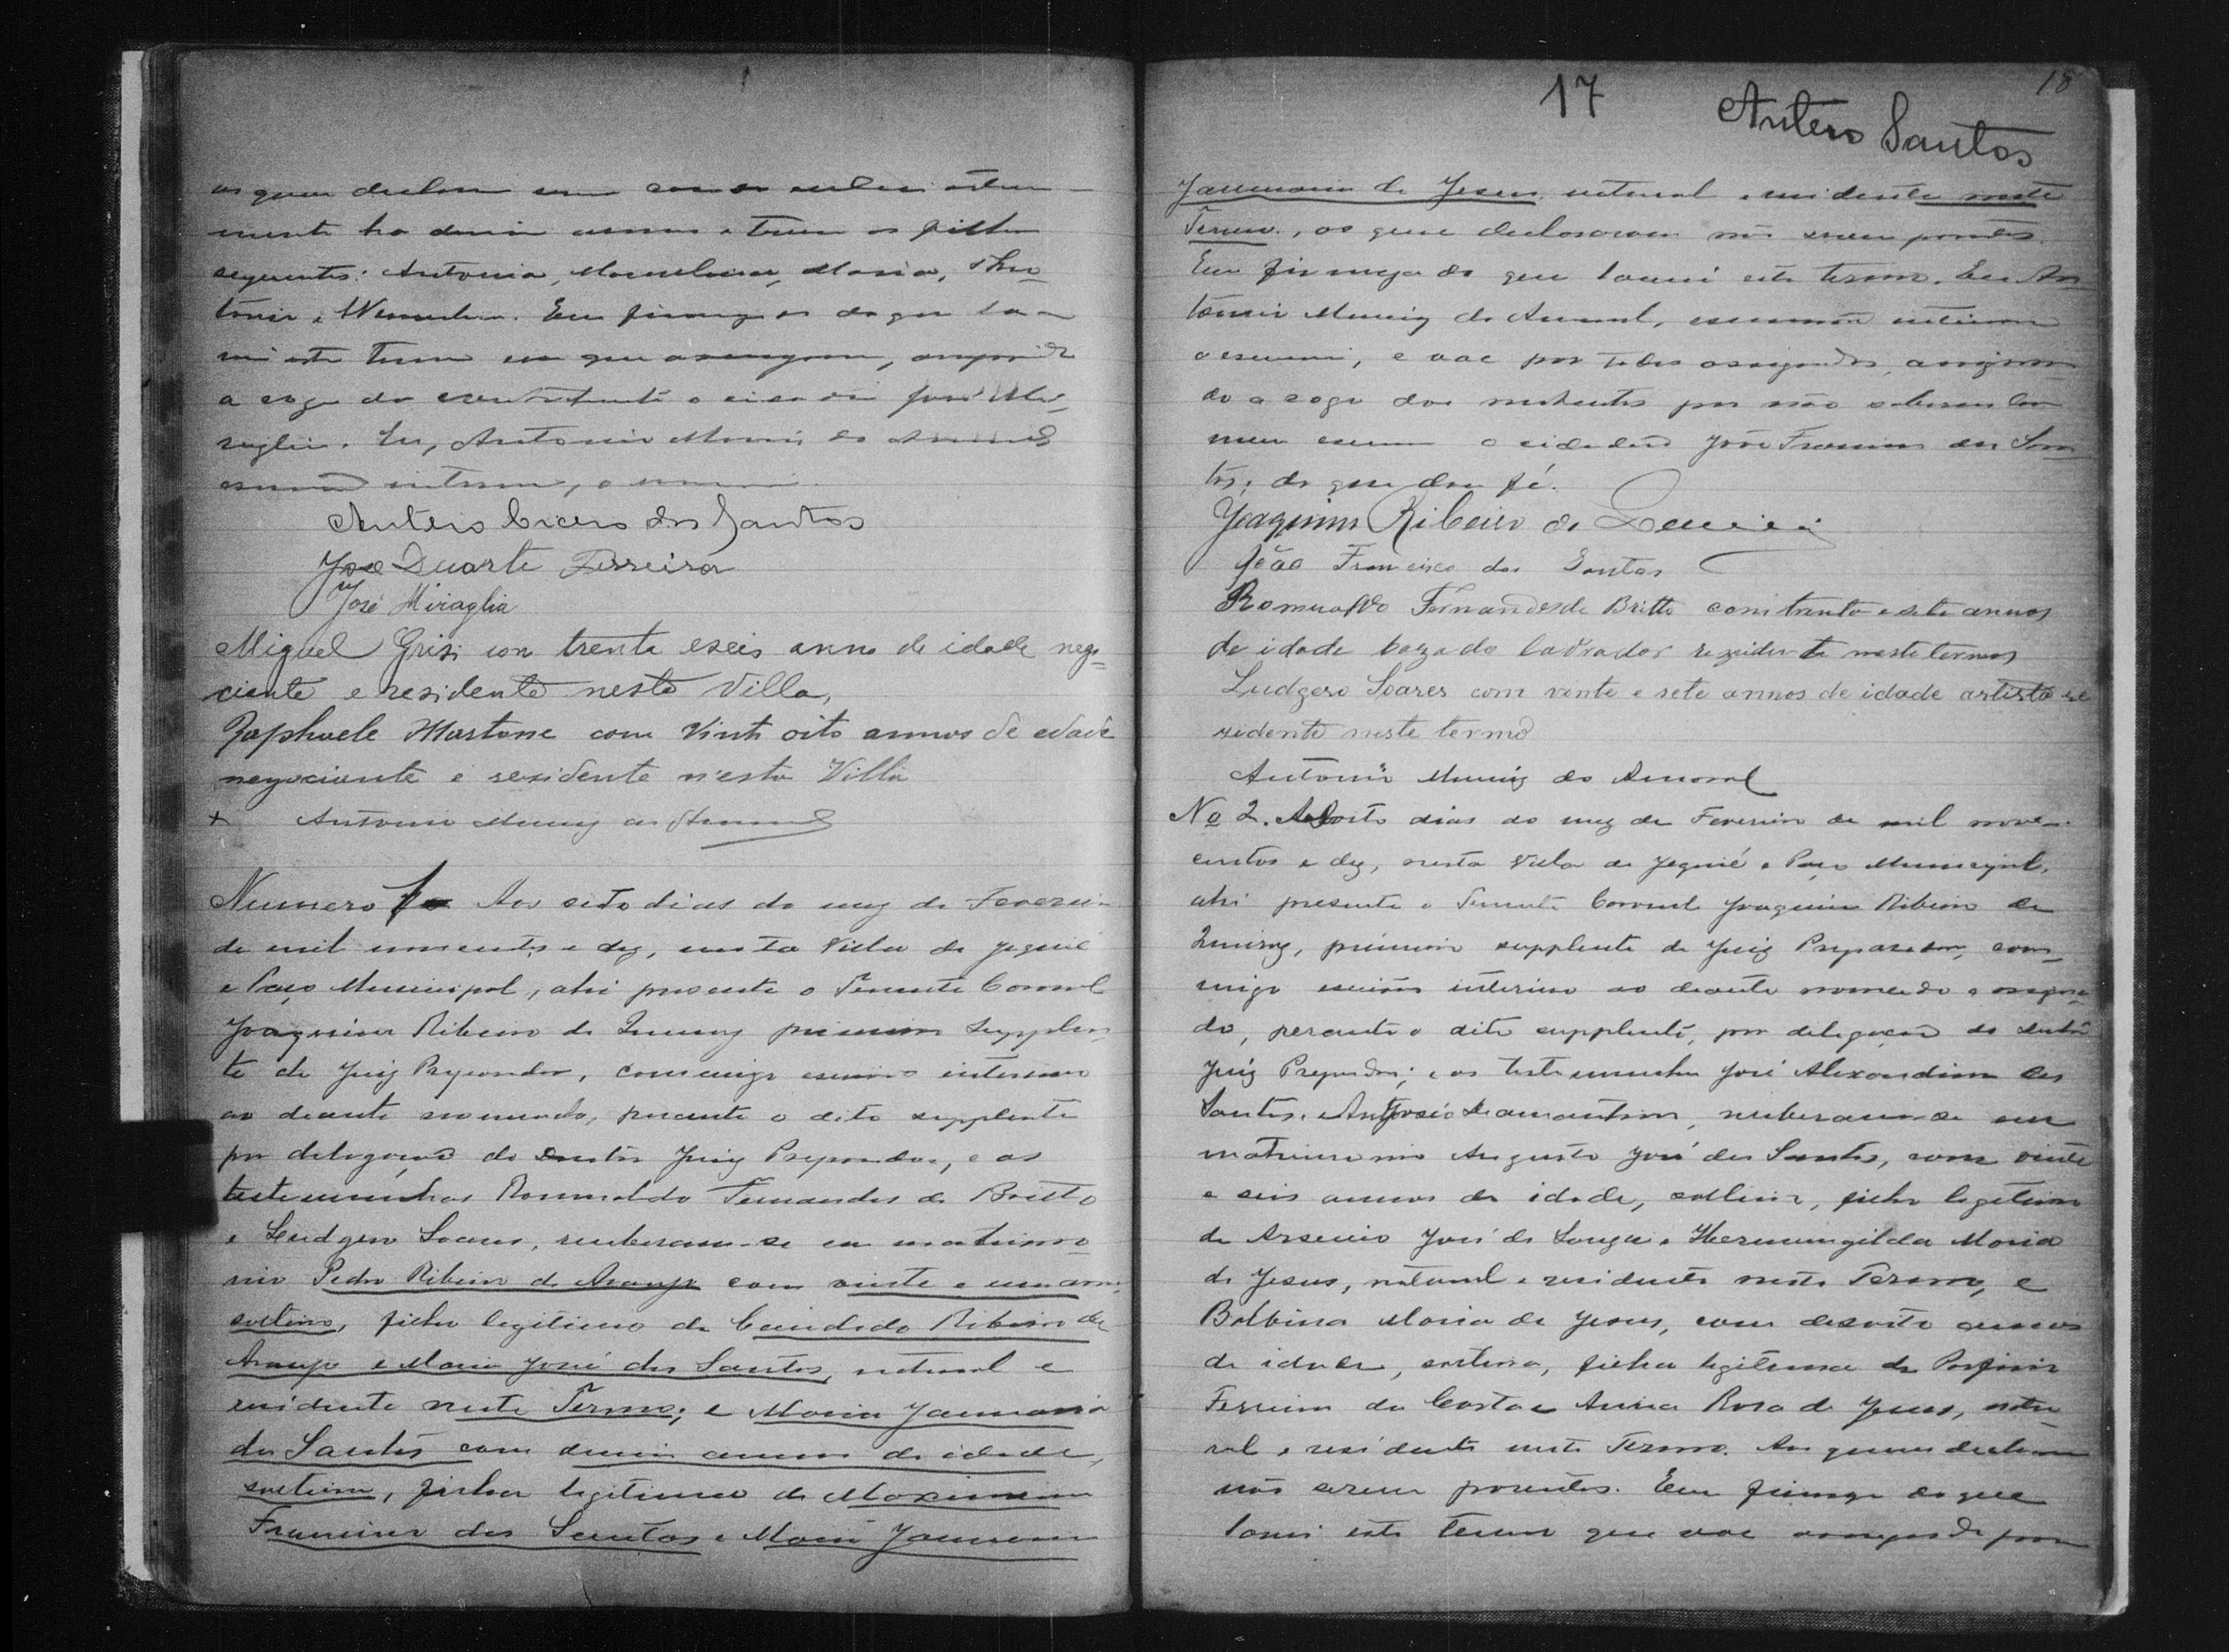 os quaes declaram
mente ha annos e tem os filhos
seguintes: Antonia, Maria, An-
tonio e Eu firmeza do que la-
vrei este termo em que assignam,
a rogo da contratante o cidadão José Mi-
raglia. Eu, Antonio Muniz do Amaral
escrivão interino, o escrevi.
Antero Cicero dos Santos
José Duarte Ferreira
José Miraglia
Miguel Grisi con trenta e seis anno de idade nego-
ciante e residente nesta Villa,
Raphaele Martone com Vinti oito annos de edade
negociante e residente n'esta Villa
+ Antonio Muniz do Amaral
Numero Aos oito dias do mez de Fevereiro
de mil novecentos e dez, nesta Villa de Jequié
e Paço Municipal, ahi presente o Tenente Coronel
Joaquim Ribeiro de Queiroz primeiro Supplen-
te de Juiz Preparador, commigo escrivão interino
ao deante nomeado, perante o dito supplente
por delegação do Doutor Juiz Preparador, e as
testemunhas Romualdo Fernandes de Britto
e Ludgero Soares, receberam-se em matrimo-
nio Pedro Ribeiro de Araujo com vinte e um annos,
solteiro, filho legitimo de Candido Ribeiro de
Araujo e Maria José dos Santos, natural e
residente neste Termo; e Maria Januaria
dos Santos com annos de idade,
solteira, filha legitima de Maximiano
Francisco dos Santos e Maria Januaria
17 Antero Santos 18
Januaria de Jesus, natural e residente neste
Termo, os quaes declararam não serem parentes.
Em firmeza do que lavrei este termo. Eu An-
tonio Muniz do Amaral, escrivão interino
o escrevi, e vae por todos assignados, assignan-
do a rogo dos nubentes por não saberem ler
nem escrever o cidadão João Francisco dos San-
tos; do que dou fé.
Joaquim Ribeiro de Queiroz
João Francisco dos Santos
Romualdo Fernandes de Britto com trenta e sete annos
de idade cazado lavrador rezidente neste termos
Ludgero Soares com vinte e sete annos de idade artista re
zidente neste termo
Antonio Muniz do Amaral
No 2. Aos oito dias do mez de Fevereiro de mil nove-
centos e dez, nesta Villa de Jequié e Paço Municipal,
ahi presente o Tenente Coronel Joaquim Ribeiro de
Queiroz, primeiro supplente de Juiz Preparador, com-
migo escrivão interino ao deante nomeado e assigna-
do, perante o dito supplente, por delegação do Doutor
Juiz Preparador; e as testemunhas José Alexandrino dos
Santos e Diamantino, receberam-se em
matrimonio Augusto José dos Santos, com vinte
e seis annos de idade, solteiro, filho legitimo
de Arsenio José de Souza e Hermingilda Maria
de Jesus, natural e residente neste Termo, e
Balbina Maria de Jesus, com desoito annos
de idade, solteira, filha legitima de Porfirio
Ferreira da Costa e Anna Rosa de Jesus, natu-
ral e residente neste Termo. Os quaes declaram
não serem parentes. Em firmeza do que
lavrei este termo que vae assignado por